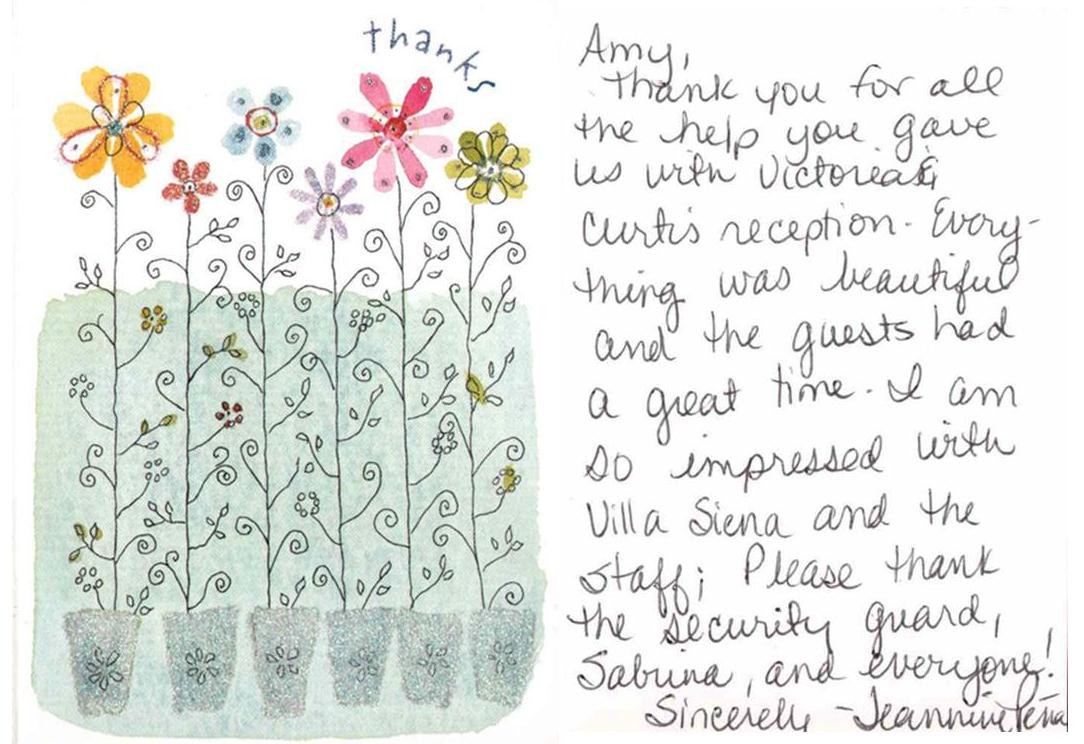 thanks
Amy,
Thank you for all
the help you gave
us with Victoria &
Curtis reception. Every-
thing was beautiful
and the guests had
a great time. I am
so impressed with
Villa Siena and the
staff; Please thank
the security guard,
Sabrina, and everyone!
Sincerely - Jeannine Peña